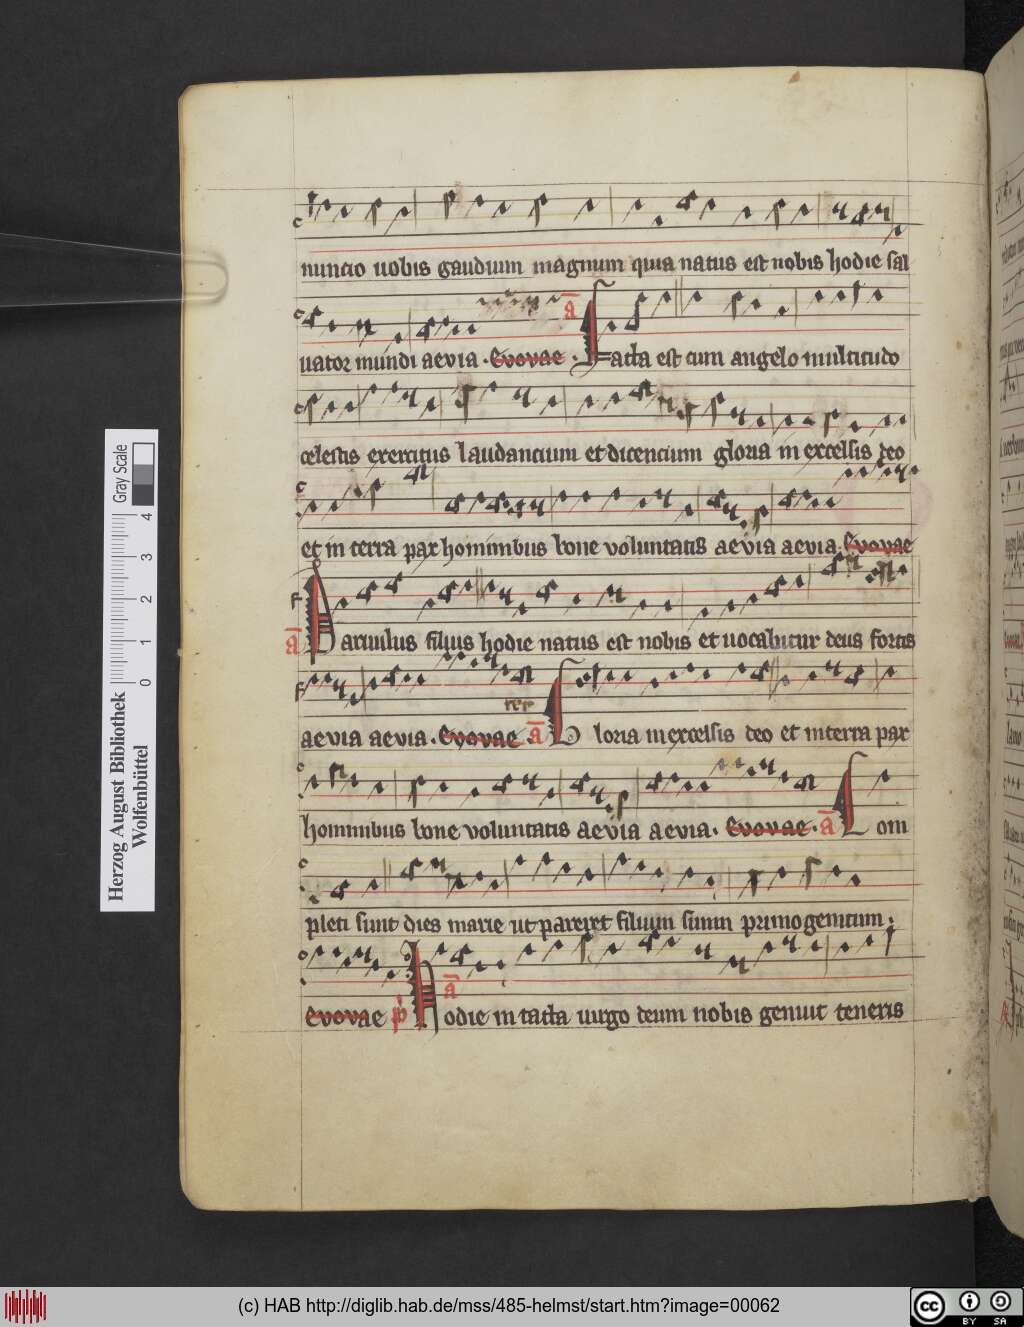 nuncio uobis gaudium magnum quia natus est nobis hodie sal
uator mundi aevia · Evovae · a Facta est cum angelo multitudo
celestis exercitus laudancium et dicencium gloria in excelsis deo
et in terra pax hominibus bone voluntatis aevia aevia · Evovae
a Parvulus filius hodie natus est nobis et uocabitur deus fortis
aevia aevia · Evovae a Gloria in excelsis deo et in terra pax
hominibus bone voluntatis aevia aevia · Evovae · a Com
pleti sunt dies marie ut pareret filium suum primogenitum ·
Evovae a Hodie intacta uirgo deum nobis genuit teneris
Herzog August Bibliothek
Wolfenbüttel
0 1 2 3 4
Gray Scale
(c) HAB http://diglib.hab.de/mss/485-helmst/start.htm?image=00062
cc BY SA